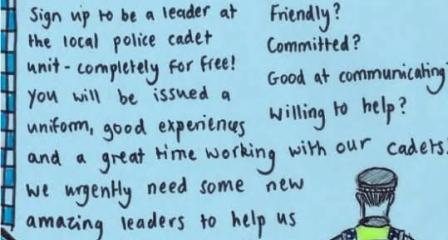 Sign up to be a leader at
the local police cadet
unit - completely for free!
You will be issued a
uniform, good experiences
and a great time working with our cadets.
we urgently need some new
amazing leaders to help us
Friendly?
Committed?
Good at communicating?
Willing to help?